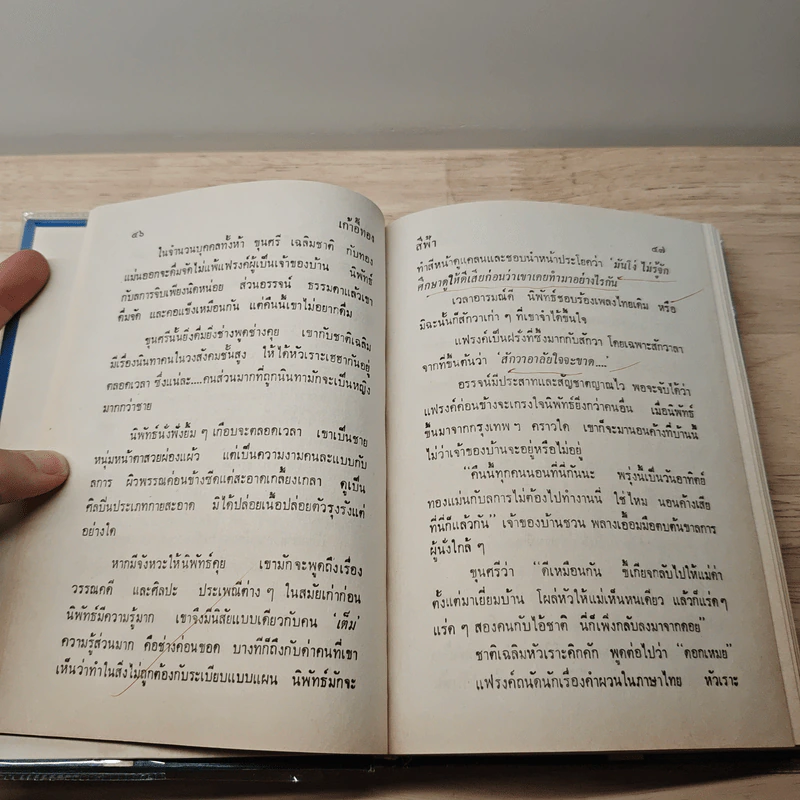 ๔๖
เก้าอี้ทอง
ในจำนวนบุคคลทั้งห้า ขุนศรี เฉลิมชาติ กับทอง
แม่นออกจะดื่มจัดไม่แพ้แฟรงค์ผู้เป็นเจ้าของบ้าน นิพัทธ์
กับลการจิบเพียงนิดหน่อย ส่วนอรรจน์ ธรรมดาแล้วเขา
ดื่มจัด และคอแข็งเหมือนกัน แต่คืนนี้เขาไม่อยากดื่ม
ขุนศรีนั้นยิ่งดื่มยิ่งช่างพูดช่างคุย เขากับชาติเฉลิม
มีเรื่องนินทาคนในวงสังคมชั้นสูง ให้ได้หัวเราะเฮฮากันอยู่
ตลอดเวลา ซึ่งแน่ละ....คนส่วนมากที่ถูกนินทามักจะเป็นหญิง
มากกว่าชาย
นิพัทธ์นั่งฟังยิ้ม ๆ เกือบจะตลอดเวลา เขาเป็นชาย
หนุ่มหน้าตาสวยผ่องแผ้ว แต่เป็นความงามคนละแบบกับ
ลการ ผิวพรรณค่อนข้างซีดแต่สะอาดเกลี้ยงเกลา ดูเป็น
ศิลปินประเภทกายสะอาด มิได้ปล่อยเนื้อปล่อยตัวรุงรังแต่
อย่างใด
หากมีจังหวะให้นิพัทธ์คุย เขามักจะพูดถึงเรื่อง
วรรณคดี และศิลปะ ประเพณีต่าง ๆ ในสมัยเก่าก่อน
นิพัทธ์มีความรู้มาก เขาจึงมีนิสัยแบบเดียวกับคน ‘เต็ม’
ความรู้ส่วนมาก คือช่างค่อนขอด บางทีก็ถึงกับด่าคนที่เขา
เห็นว่าทำในสิ่งไม่ถูกต้องกับระเบียบแบบแผน นิพัทธ์มักจะ
สีฟ้า
๔๗
ทำสีหน้าดูแคลนและชอบนำหน้าประโยคว่า ‘มันโง่ ไม่รู้จัก
ศึกษาดูให้ดีเสียก่อนว่าเขาเคยทำมาอย่างไรกัน’
เวลาอารมณ์ดี นิพัทธ์ชอบร้องเพลงไทยเดิม หรือ
มิฉะนั้นก็สักวาเก่า ๆ ที่เขาจำได้ขึ้นใจ
แฟรงค์เป็นฝรั่งที่ซึ้งมากกับสักวา โดยเฉพาะสักวาลา
จากที่ขึ้นต้นว่า ‘สักวาอาลัยใจจะขาด....’
อรรจน์มีประสาทและสัญชาตญาณไว พอจะจับได้ว่า
แฟรงค์ค่อนข้างจะเกรงใจนิพัทธ์ยิ่งกว่าคนอื่น เมื่อนิพัทธ์
ขึ้นมาจากกรุงเทพ ฯ คราวใด เขาก็จะมานอนค้างที่บ้านนี้
ไม่ว่าเจ้าของบ้านจะอยู่หรือไม่อยู่
“คืนนี้ทุกคนนอนที่นี่กันนะ พรุ่งนี้เป็นวันอาทิตย์
ทองแม่นกับลการไม่ต้องไปทำงานนี่ ใช่ไหม นอนค้างเสีย
ที่นี่ก็แล้วกัน” เจ้าของบ้านชวน พลางเอื้อมมือตบต้นขาลการ
ผู้นั่งใกล้ ๆ
ขุนศรีว่า “ดีเหมือนกัน ขี้เกียจกลับไปให้แม่ด่า
ตั้งแต่มาเยี่ยมบ้าน โผล่หัวให้แม่เห็นหนเดียว แล้วก็แร่ด ๆ
แร่ด ๆ สองคนกับไอ้ชาติ นี่ก็เพิ่งกลับลงมาจากดอย”
ชาติเฉลิมหัวเราะคิกคัก พูดต่อไปว่า “ดอกเหมย”
แฟรงค์ถนัดนักเรื่องคำผวนในภาษาไทย หัวเราะ